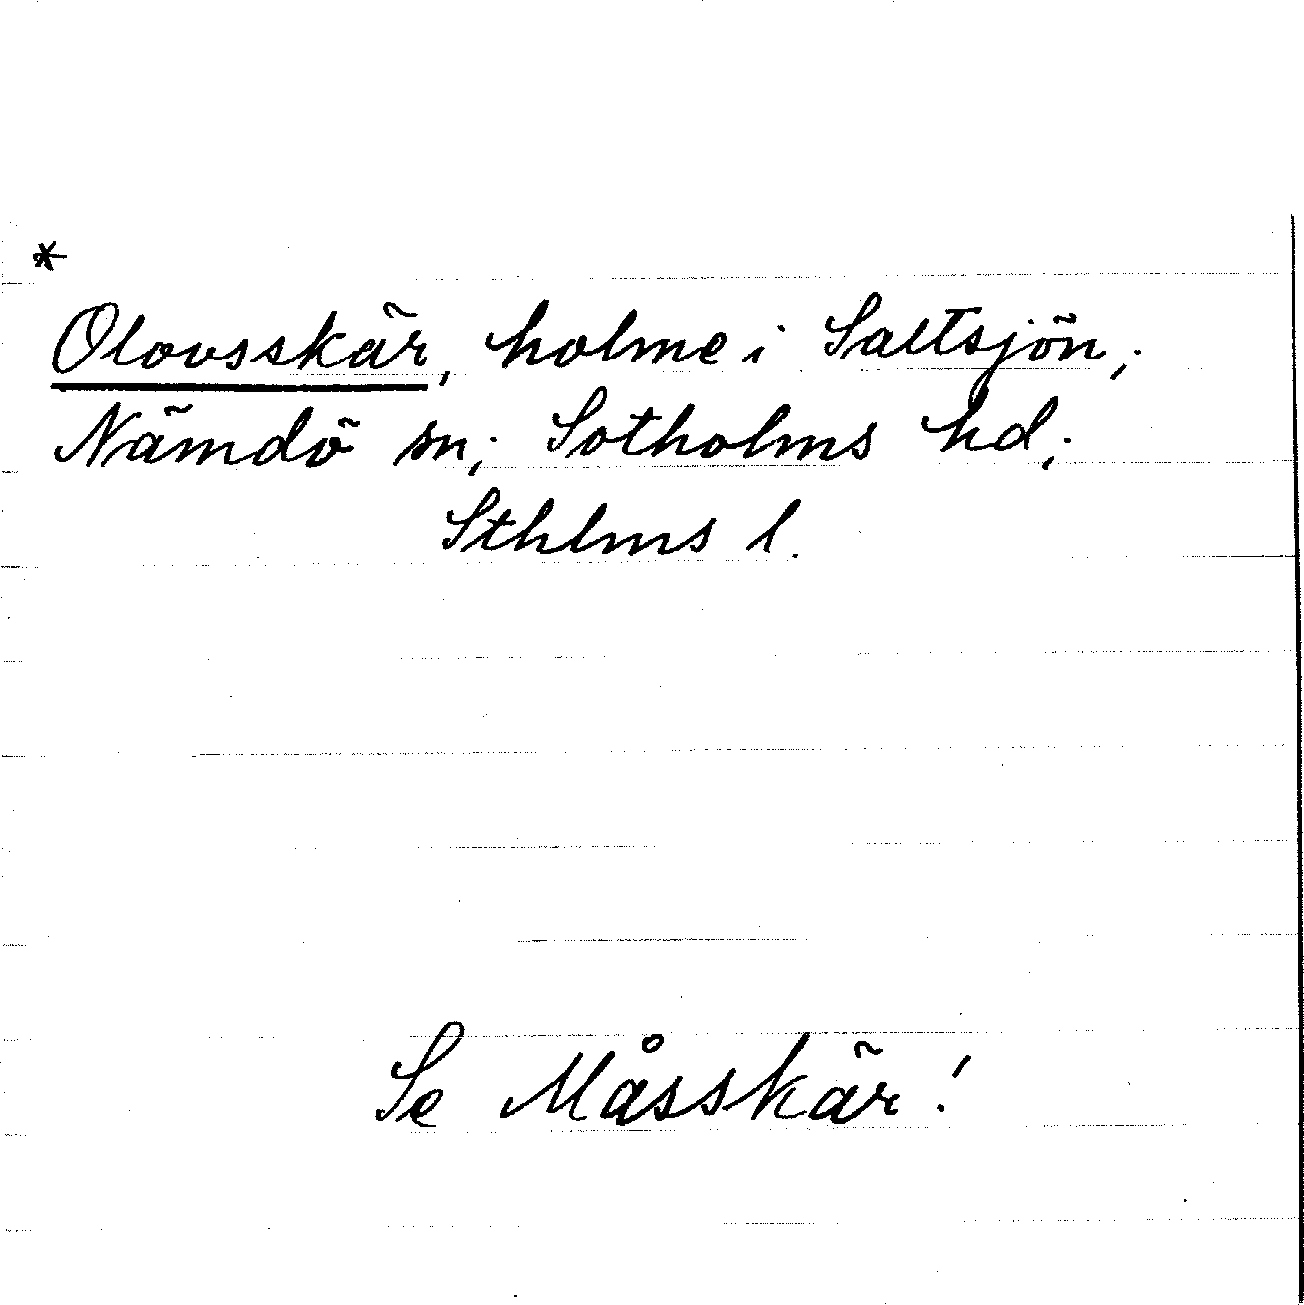 *
Olovsskär, holme i Saltsjön;
Nämdö sn; Sotholms hd;
Sthlms l.
Se Måsskär!